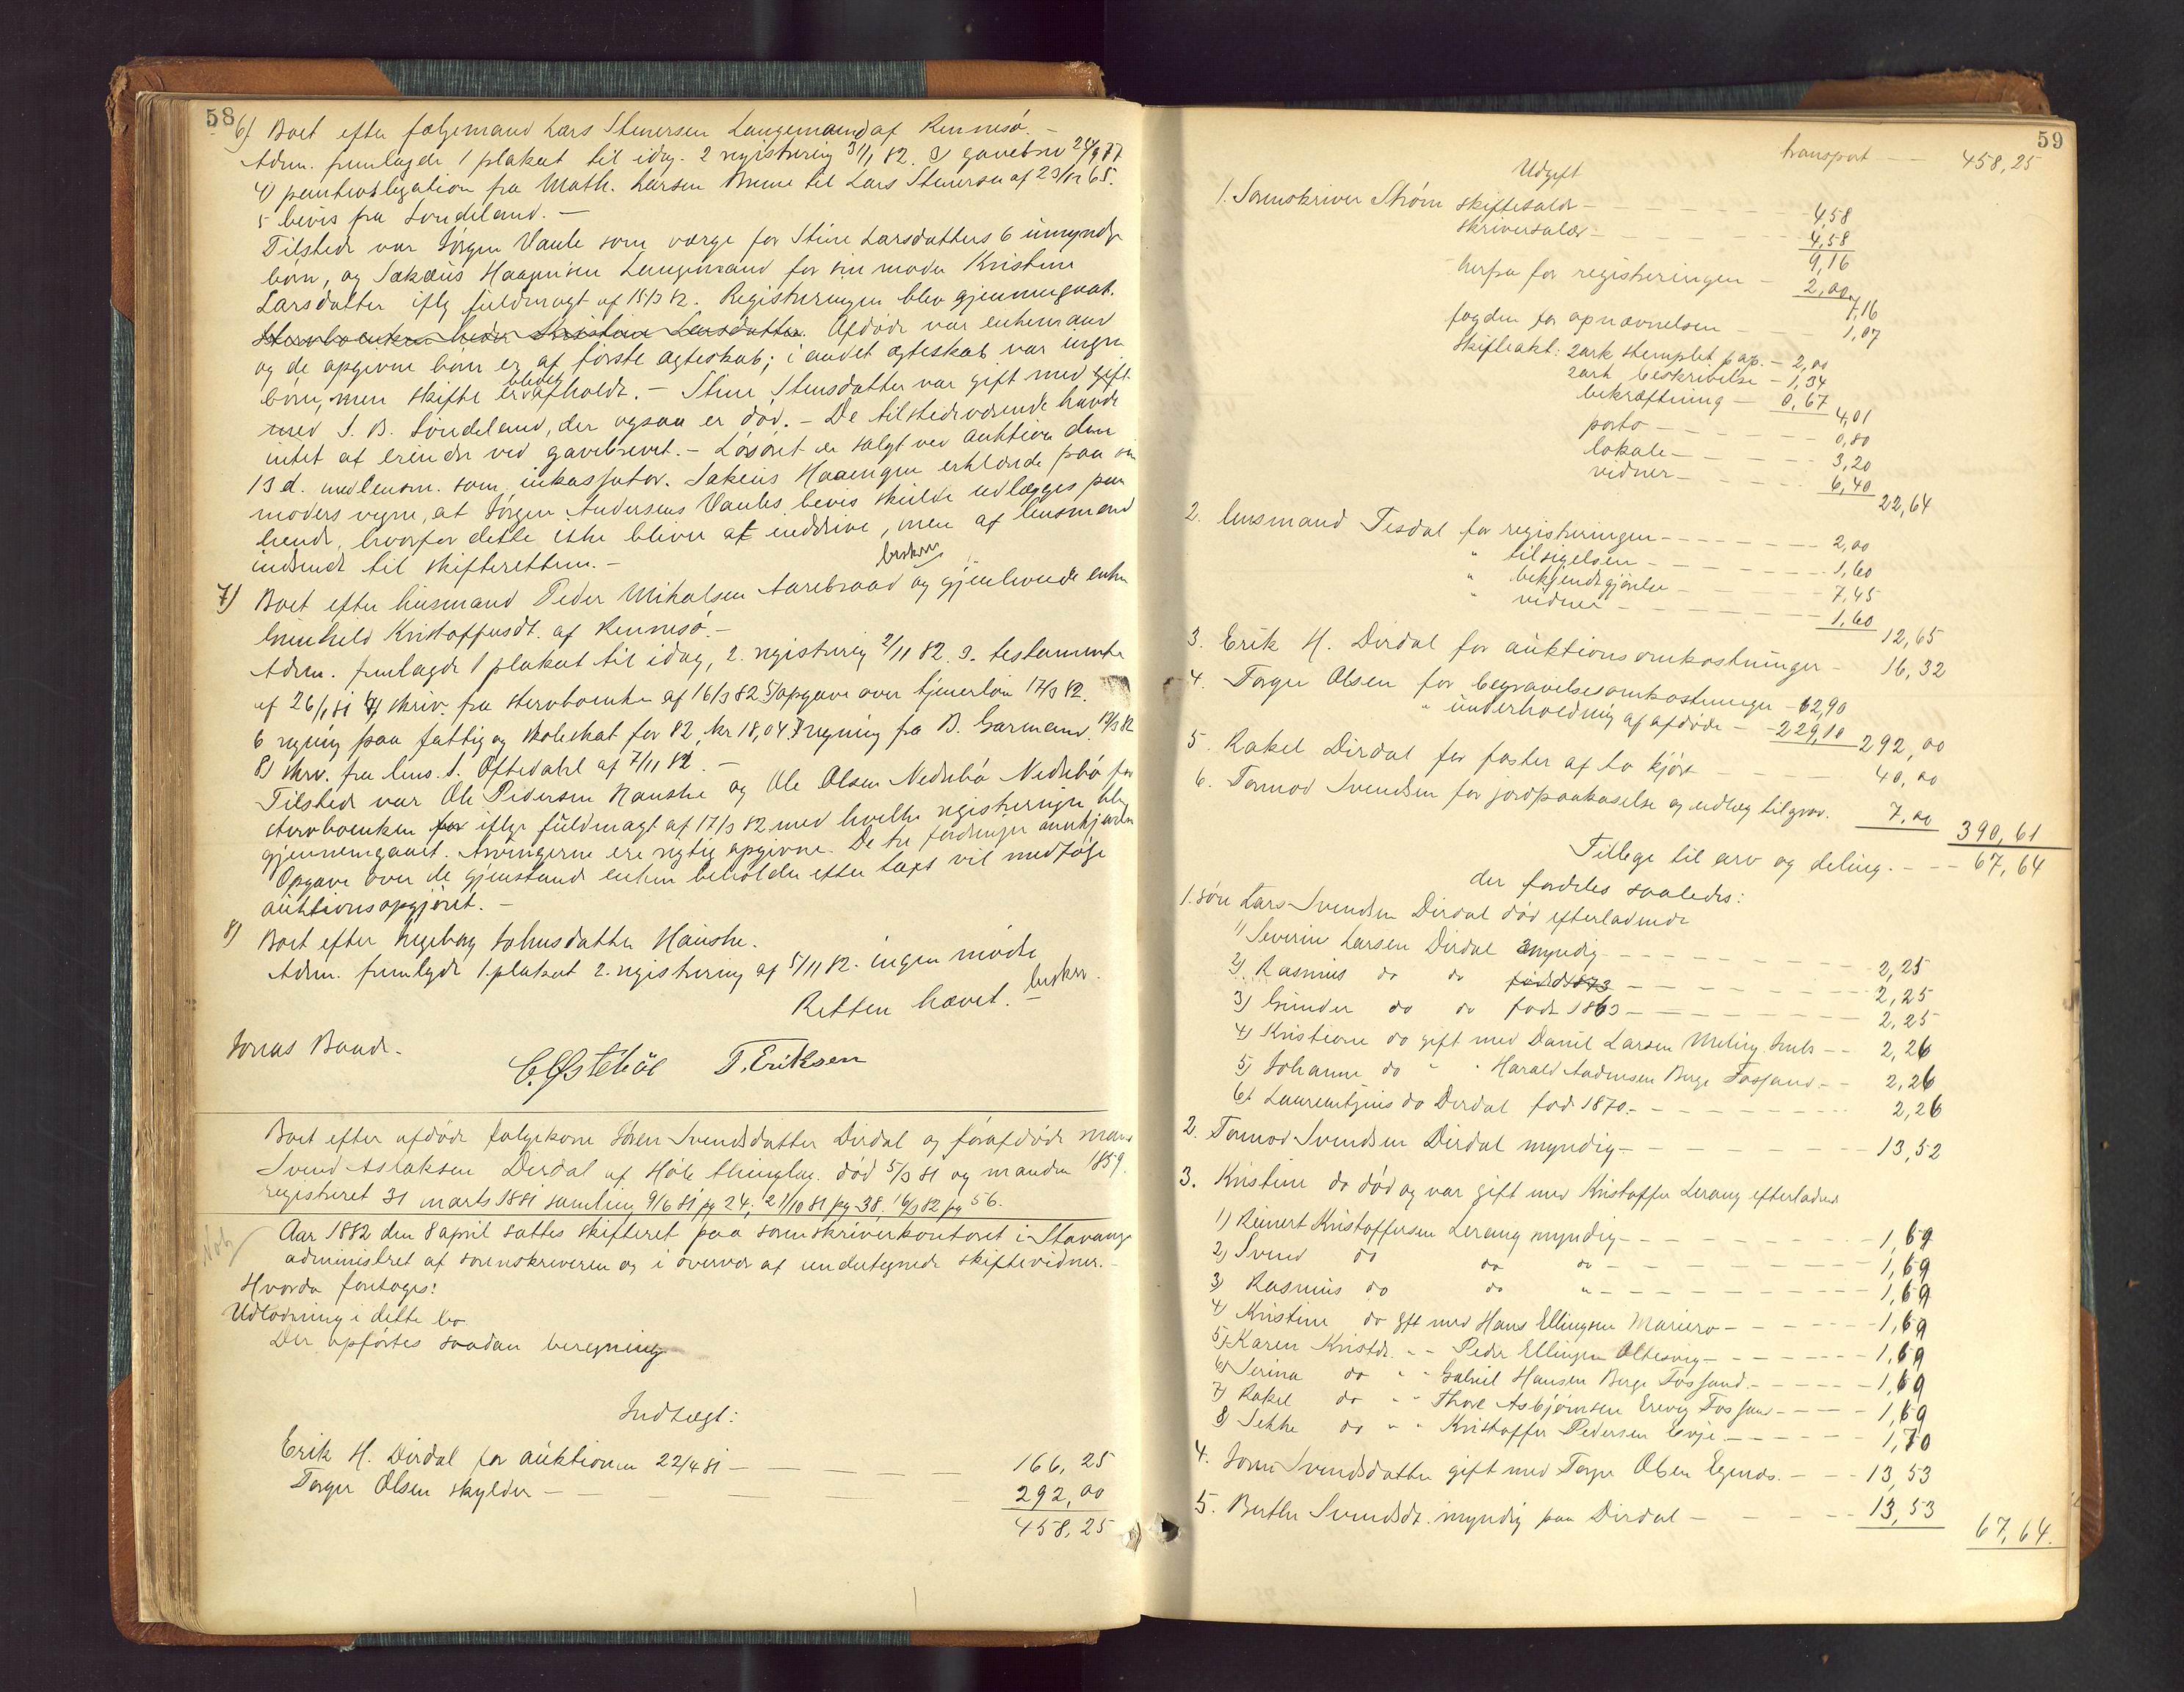 58
6) Boet efter følgemand Lars Stenersen Langemand af Rennesø. –
Adm. fremlagde 1 plakat til idag. 2 registrering 3/11 82. 3) gavebrev 24/9 77
4) panteobligation fra Math. Larsen Brune til Lars Stenersen af 23/12 65.
5 bevis fra Søndeland. –
Tilstede var Jørgen Vaule som værge for Stine Larsdatters 6 umyndge
børn, og Sakæus Haagensen Langemand for sin moder Kristine
Larsdatter iflg fuldmagt af 15/3 82. Registreringen blev gjennemgaat.
Stervboenken heder Kristine Larsdatter. Afdøde var enkemand
og de opgivne børn er af første ægteskab; i andet ægteskab var ingen
børn, men skifte er blevet afholdt. – Stine Stensdatter var gift med gift
med S. B. Søndeland, der ogsaa er død. – De tilstedeværende havde
intet at erindre ved gavebrevet. – Løsøret er solgt ved auktion den
13 d. med lensm. som inkassator. Sakeus Haaengen erklærede paa sin
moders vegne, at Jørgen Andersens Vaules bevis skulde udlægges paa
hende, hvorfor dette ikke bliver at inddrive, men af lensmand
indsende til skifteretten. –
beskrev
7) Boet efter husmand Peder Mikalsen Aarebraad og gjenlevende enke
Gunhild Kristoffersdt. af Rennesø. –
Adm. fremlagde 1 plakat til idag, 2. registrerig 2/11 82. 3. testamente
af 26/1 81 4) skriv. fra stervboenke af 16/3 82 5) opgave over tjenerløn 17/3 82.
6 regning paa fattig og skoleskat for 82, kr 18,04 7 regning fra B. Garmann 19/3 82
8) skrv. fra lens. S. Oftedahl af 7/11 82. –
Tilstede var Ole Pedersen Hauske og Ole Olsen Nedrebø Nedrebø for
stervboenken for iflge fuldmagt af 17/3 82 med hvilke registreringen blev
gjennemgaaet. Arvingerne ere rigtig opgivne. De tre fordringer annkjendes
Opgave over de gjenstande enken beholder efter taxt vil medfølge
auktionsopgjøret. –
8) Boet efter Ingeborg Johnsdatter Hauske.
Adm. fremlagde 1. plakat 2. registrering af 5/11 82. ingen mødte
beskrv.
Retten hævet. –
Jonas Baade.
C. Østebøe T. Eriksen
Boet efter afdøde følgekone Søren Svendsdatter Dirdal og førafdøde mand
Svend Aslaksen Dirdal af Høle thinglag. død 5/3 81 og manden 1859.
registreret 31 marts 1881 samling 9/6 81 pg 24; 21/10 81 pg 38, 16/3 82 pg 56.
Not
Aar 1882 den 8 april sattes skifteret paa sorenskriverkontoret i Stavanger
administret af sorenskriveren og i overvær af undertegnede skiftevidner. –
Hvorda foretoges:
Udlodning i dette bo
Der opførtes saadan beregning
Indtægt:
Erik H. Dirdal for auktionen 22/4 81 – 166,25
Torger Olsen skylder – 292,00
458,25
59
transport – 458,25
Udgift
1. Sorenskriver Strøm skiftesalær – 4,58
skriversalær – 4,58
9,16
herfra for registreringen – 2,00
7,16
fogden for opnævnelsen – 1,07
skifteakt: 2 ark stemplet pap. – 2,00
2 ark beskrivelse – 1,34
bekræftning – 0,67
4,01
porto – 0,80
lokale – 3,20
vidner – 6,40
22,64
2. lensmand Tesdal for registreringen – 2,00
" tilsigelsen – 1,60
" bekjendtgjørelse – 7,45
" vidner – 1,60
12,65
3. Erik H. Dirdal for auktionsomkostninger – 16,32
4. Torger Olsen for begravelsesomkostninger – 62,90
" underholdnig af afdøde – 229,10
292,00
5. Rakel Dirdal for foster af to kjør – 40,00
6. Tormod Svendsen for jordpaakastelse og udlæg til grav. 7,00
390,61
Tillegs til arv og deling. – 67,64
der fordeles saaledes:
1. søn Lars Svendsen Dirdal død efterladende
1) Severin Larsen Dirdal myndig – 2,25
2). Rasmus do do født 1873 – 2,25
3) Gunder do do født 1863 – 2,25
4) Kristiane do gift med Daniel Larsen Meling Sule – 2,26
5) Johanne do " " Harald Andersen Berge Fossand – 2,26
6) Laurentzius do Dirdal fød 1870. – 2,26
2. Tormod Svendsen Dirdal myndig – 13,52
3. Kristine do død og var gift med Kristoffer Lerang efterladend
1) Reinert Kristoffersen Lerang myndig – 1,69
2) Svend do do do – 1,69
3) Rasmus do do " – 1,69
4) Kristine do gft med Hans Ellingsen Mariero – 1,69
5) Karen Kristdt. – – Peder Ellingsen Oltesvig – 1,69
6) Serina do " " Gabriel Hansen Berge Fossand. – 1,69
7) Rakel do " " Thore Asbjørnsen Erevig Fossand – 1,69
8) Sekke do " " Kristoffer Pedersen Eeje – 1,70
4. Soren Svendsdatter gift med Torger Olsen Egenes. – 13,53
5. Berthe Svendsdt. myndig paa Dirdal – 13,53
67,64.